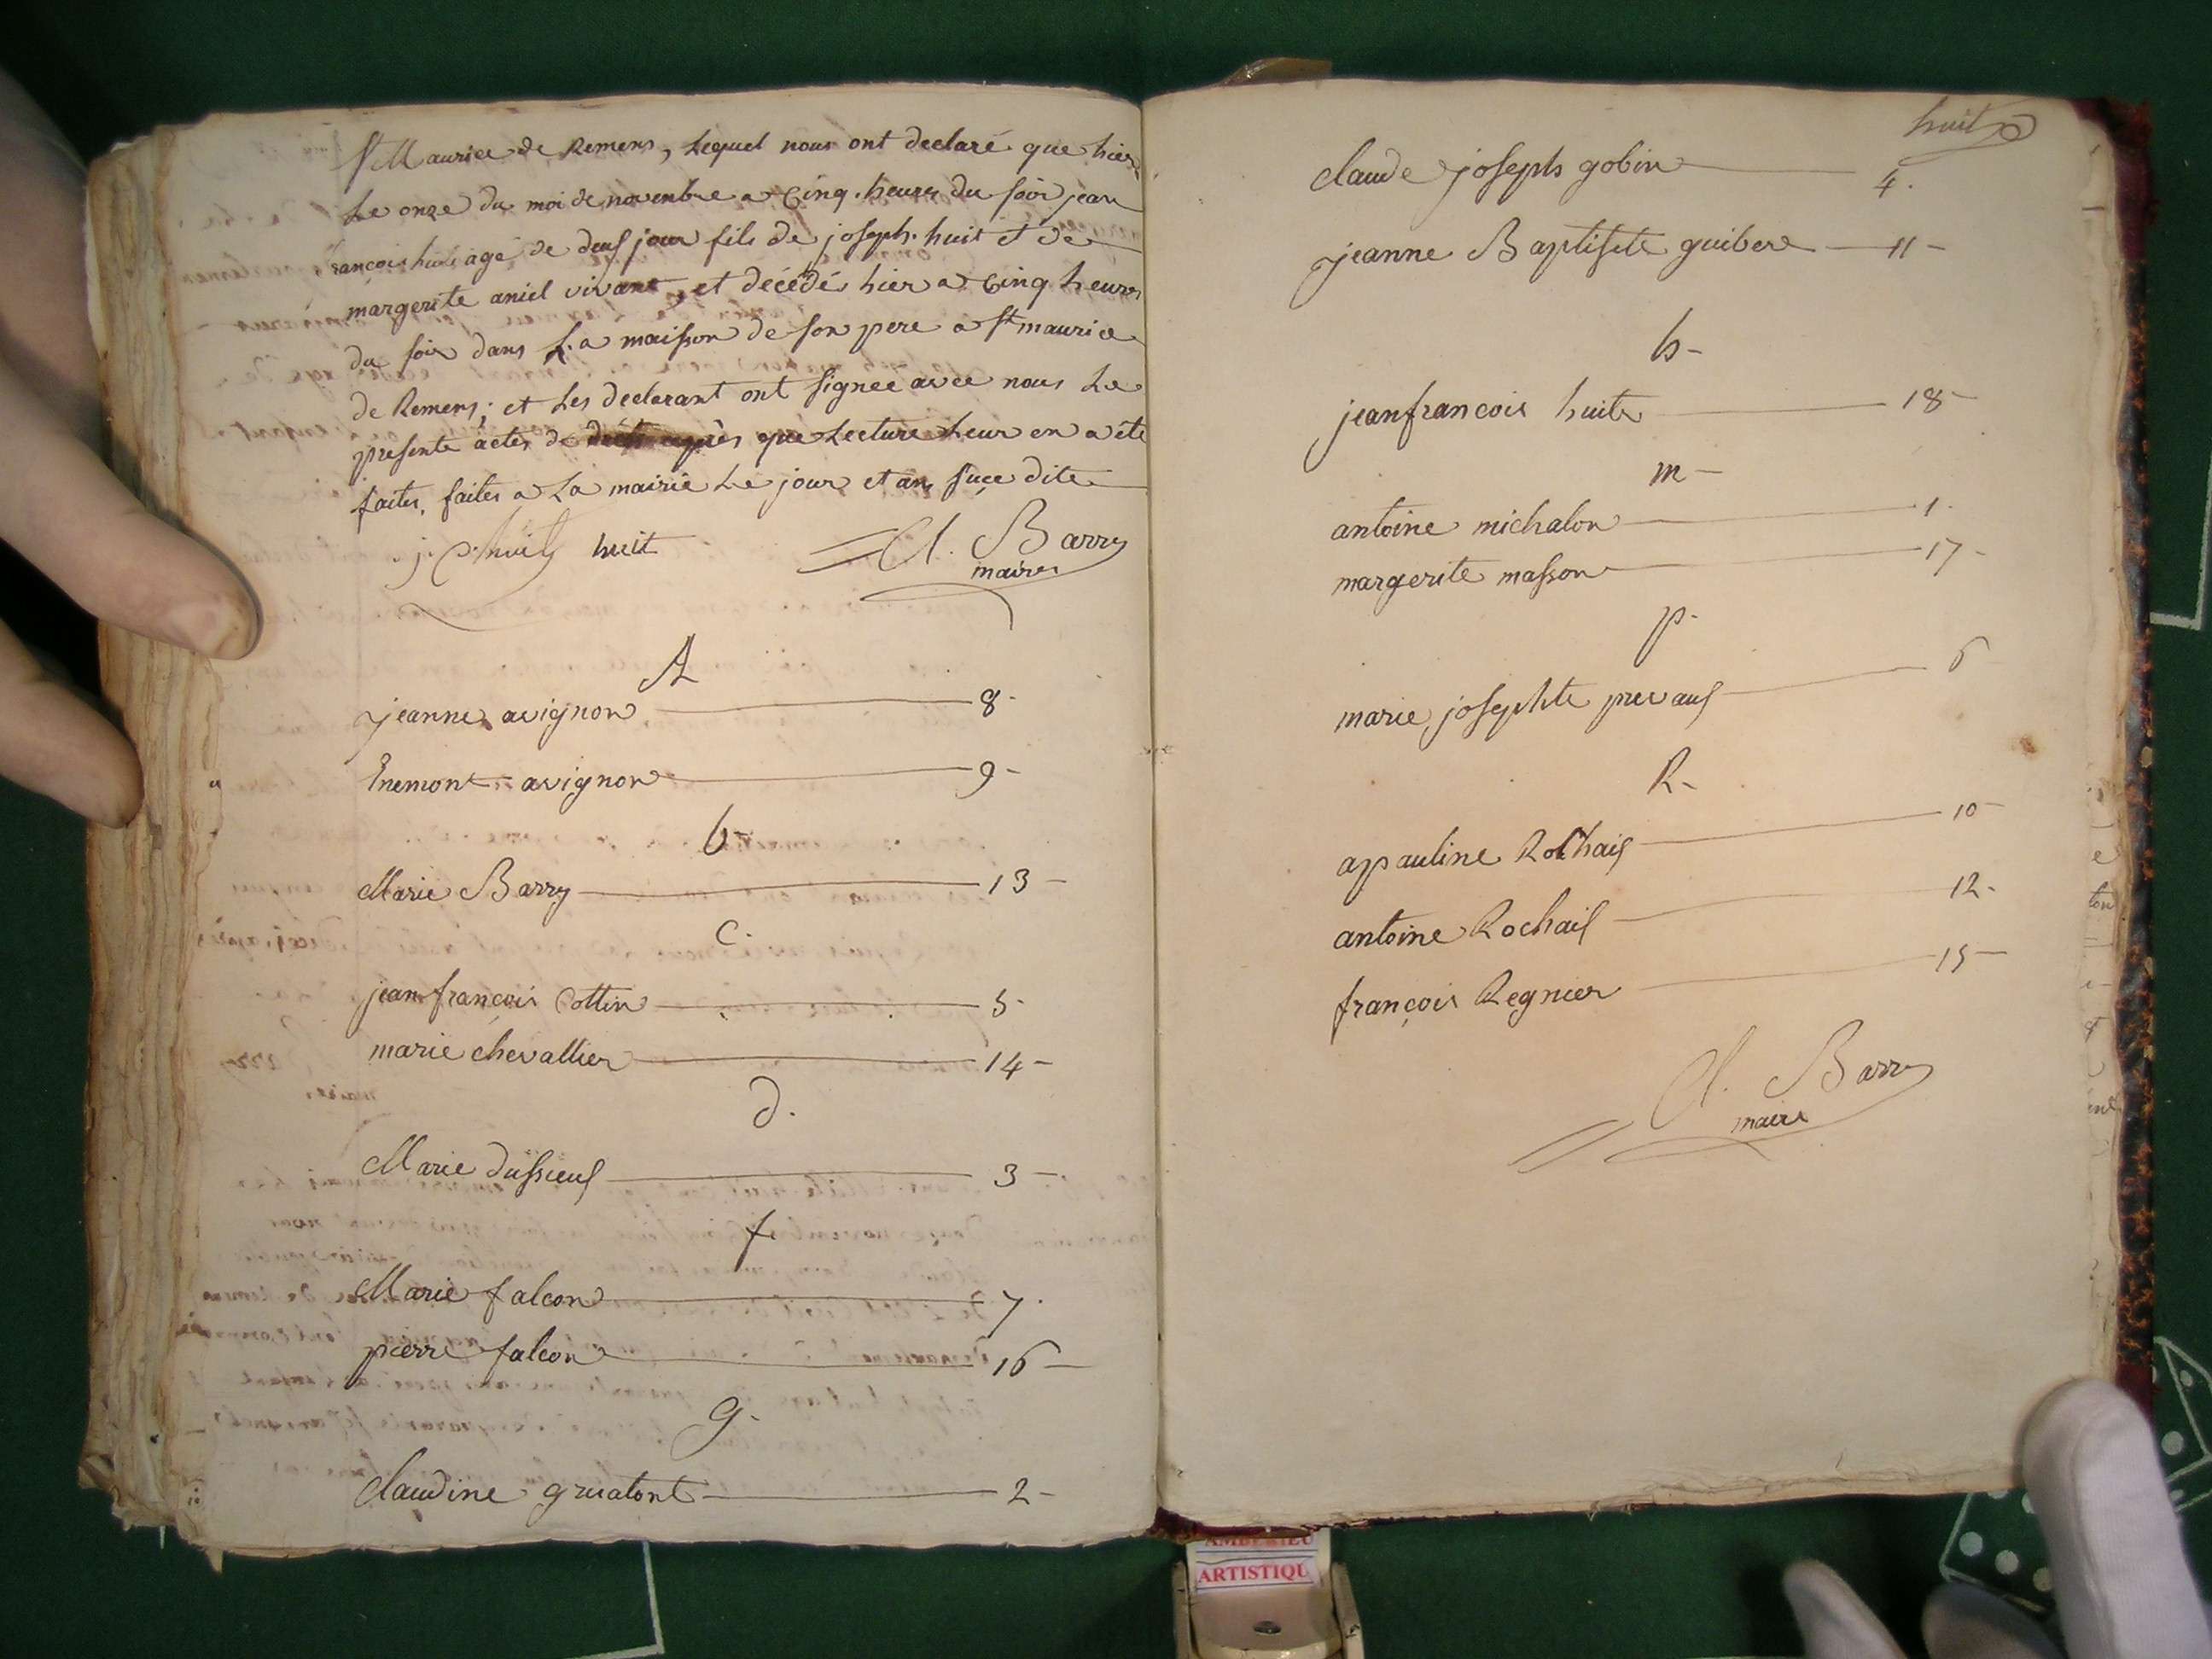 St Maurice de Remens, Lequel nous ont declaré que hier
Le onze du moi de novembre a cinq heures du soir jean
françois huit agé de deus jour fils de joseph huit et de
margerite aniel vivant, et décédés hier a cinq heures
du soir dans La maison de son pere a St maurice
de Remens; et Les declarant ont signee avec nous Le
presente actes de décès après que Lecture Leur en a été
faites, faites a La mairie Le jour et an suce dite
huit
Cl. Barry
maire
A
jeanne avignon 8-
Enemont avignon 9-
b-
Marie Barry 13-
C.
jean françois Cottin 5-
marie chevallier 14-
d.
Marie dussieus 3-
f
Marie falcon 7.
pierre falcon 16-
g.
Claudine gruatont 2-
huit
claude joseph gobin 4.
jeanne Baptiste guibere 11-
h-
jeanfrancois huite 18-
m-
antoine michalon 1.
margerite masson 17-
p-
marie josephte prevaus 6
R-
apauline Rochais 10-
antoine Rochais 12-
françois Regnier 15-
Cl. Barry
maire
AMBERIEU
ARTISTIQU